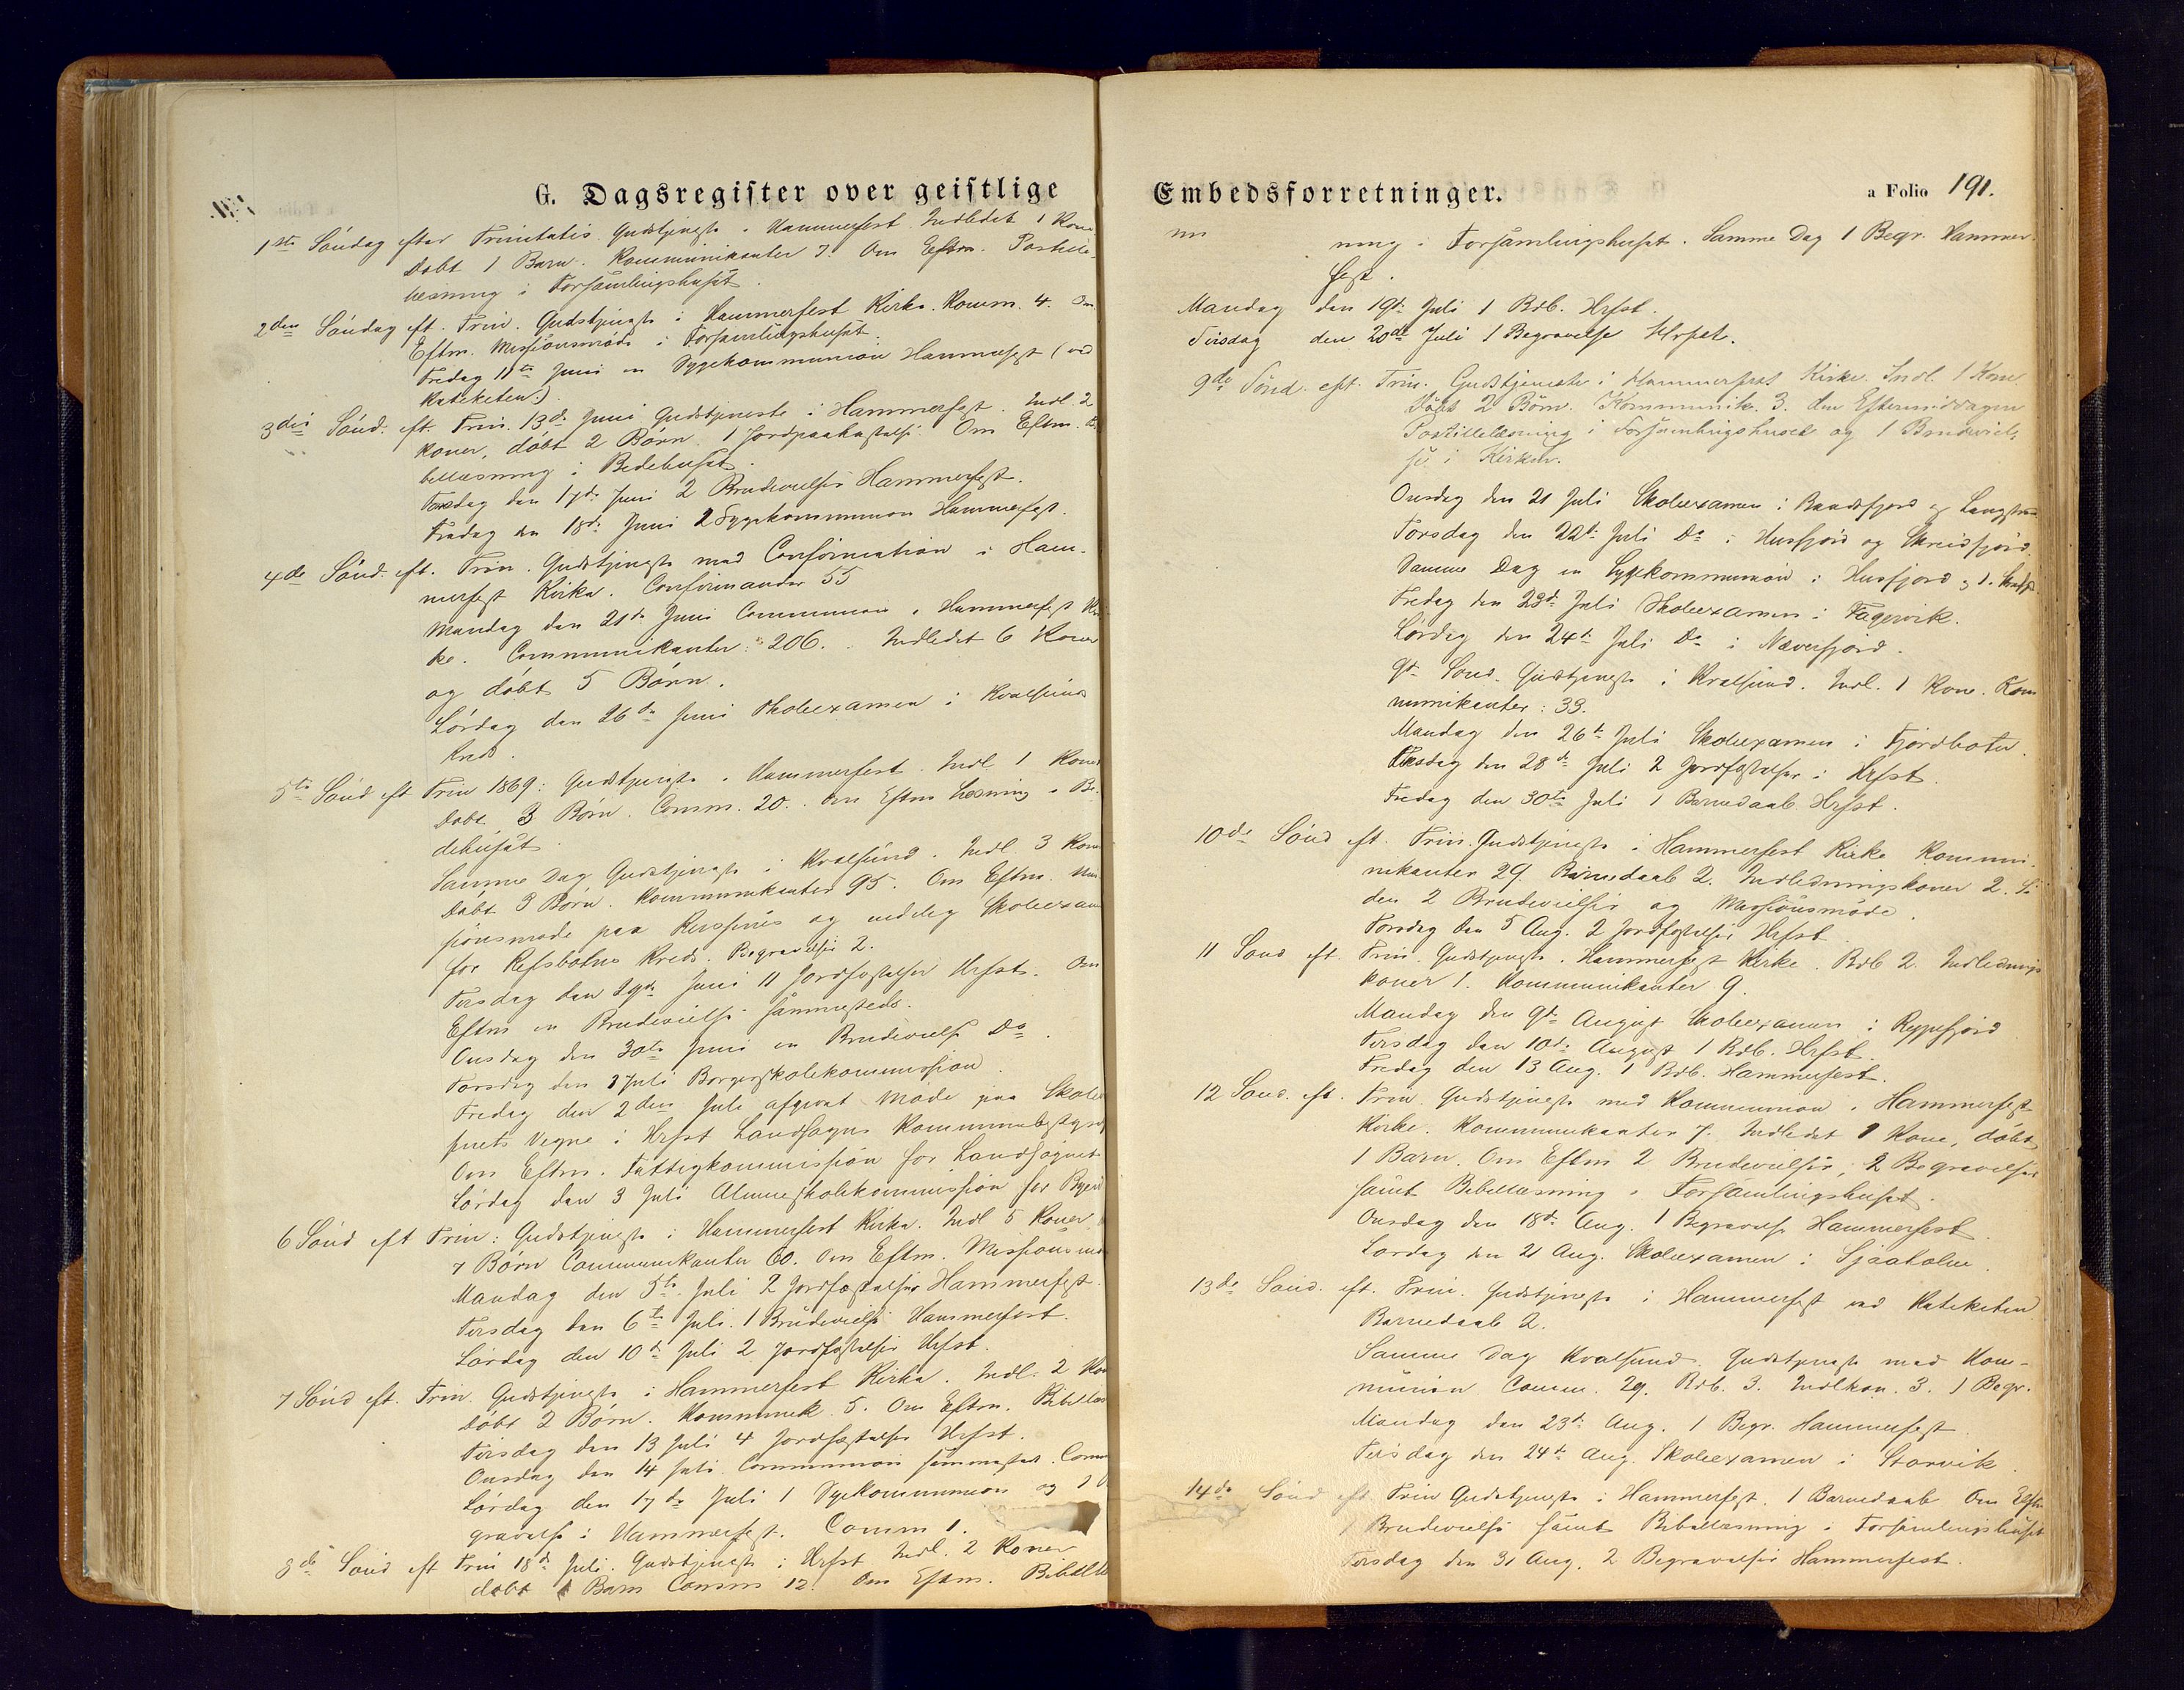 G. Dagsregister over geistlige
1ste Söndag efter Trinitatis Gudstjeneste i Hammerfest. Indledet 1 Kone
Döbt 1 Barn. Kommunikanter 7. Om Eftm. Postille-
læsning i Forsamlingshuset.
2den Söndag eft. Trin. Gudstjeneste i Hammerfest Kirke. Komm. 4. Om
Eftm. Missionsmöde i Forsamlingshuset.
Fredag 11te Juni en Sygekommunion Hammerfest (ved
Kateketen.)
3die Sönd. eft. Trin. 13de Juni Gudstjeneste i Hammerfest. Indl. 2
Koner, döbt 2 Börn. 1 Jordpaakastelse. Om Eftm. Bi-
bellæsning i Bedehuset.
Torsdag den 17de Juni 2 Brudevielser Hammerfest.
Fredag den 18de Juni 2 Sygekommunion Hammerfest.
4de Sönd. eft. Trin. Gudstjeneste med Confirmation i Ham-
merfest Kirke. Confirmander 55
Mandag den 21de Juni Communion i Hammerfest Kir
ke. Communikanter: 206. Indledet 6 Koner
og döbt 5 Börn.
Lördag den 26de Juni Skoleexamen i Kvalsund
Kreds.
5te Sönd eft Trin 1869: Gudstjeneste i Hammerfest. Indl. 1 Kone
Döbt 3 Börn. Comm. 20. Om Eftm Læsning i Be-
dehuset.
Samme Dag Gudstjeneste i Kvalsund. Indl 3 Kon
Döbt 3 Börn. Kommunikanter 95. Om Eftm. Mis
sionsmöde paa og endelig Skoleexam
for Refsbotns Kreds. Begravelser 2.
Tirsdag den 29de Juni 11 Jordfæstelser Hrfst. Om
Eftm en Brudevielse sammesteds.
Onsdag den 30te Juni en Brudevielse Do.
Torsdag den 1 Juli Borgerskolekommission.
Fredag den 2den Juli afgivet Möde paa Skole
Vegne i Hrfst Landsogns Kommunebestyre
Om Eftm. Fattigkommission for Landsognet
Lördag den 3 Juli Almueskolekommission for Byen
6 Sönd eft Trin: Gudstjeneste i Hammerfest Kirke. Indl 5 Koner
7 Börn Communikanter 60. Om Eftm. Missionsmö
Mandag den 5te Juli 2 Jordfæstelser Hammerfest.
Tirsdag den 6te Juli. 1 Brudevielse Hammerfest.
Lördag den 10de Juli 2 Jordfæstelser Hrfst.
7 Sönd eft. Trin. Gudstjeneste i Hammerfest Kirke. Indl. 2 Kon
Döbt 2 Börn. Kommunik 5. Om Eftm. Bibellæs
Tirsdag den 13 Juli 4 Jordfæstelser Hrfst.
Onsdag den 14 Juli Communion sammesteds. Comm
Lördag den 17de Juli 1 Sygekommunion og 1 B
gravelse i Hammerfest. Comm 1.
8de Sönd eft Trin 18de Juli. Gudstjeneste i Hrfst Indl. 2 Koner
döbt 1 Barn Comm 12. Om Eftm. Bibellæ
Embedsforretninger.
a Folio 191.
ning i Forsamlingshuset. Samme Dag 1 Begr. Hammer-
fest.
Mandag den 19de Juli 1 Bdb. Hrfst.
Tirsdag den 20de Juli 1 Begravelse Hrfst.
9de Sönd. eft. Trin. Gudstjeneste i Hammerfest Kirke. Indl. 1 Kone
Döbt 2 Börn. Kommunik. 3. Om Eftermiddagen
Postillelæsning i Forsamlingshuset og 1 Brudeviel-
se i Kirken.
Onsdag den 21 Juli Skoleexamen i
Torsdag den 22de Juli Do i Husfjord og Skreifjord.
Samme Dag en Sygekommunion i Husfjord
Fredag den 23de Juli Skoleexamen i Fægervik.
Lördag den 24de Juli Do i Næverfjord.
9de Sönd. Gudstjeneste i Kvalsund. Indl. 1 Kone. Kom
munikanter: 33.
Mandag den 26te Juli Skoleexamen i Fjordbotn.
den 28de Juli 2 Jordfæstelser i Hrfst.
Fredag den 30te Juli 1 Barnedaab Hrfst.
10de Sönd eft. Trin. Gudstjeneste i Hammerfest Kirke Kommu-
nikanter 29. Barnedaab 2. Indledningskoner 2. Si
den 2 Brudevielser og Missionsmöde.
Torsdag den 5 Aug. 2 Jordfæstelser Hrfst.
11 Sönd eft. Trin. Gudstjeneste i Hammerfest Kirke. Bdb 2. Indlednings
koner 1. Kommunikanter 9.
Mandag den 9de August Skoleexamen i Ryppefjord
Tirsdag den 10de August 1 Bdb. Hrfst.
Fredag den 13 Aug. 1 Bdb. Hammerfest.
12 Sönd. eft. Trin Gudstjeneste med Kommunion i Hammerfest
Kirke. Kommunikanter 7. Indledet 1 Kone, döbt
1 Barn. Om Eftm 2 Brudevielser, 2 Begravelser
samt Bibellæsning i Forsamlingshuset.
Onsdag den 18de Aug. 1 Begravelse Hammerfest.
Lördag den 21 Aug. Skoleexamen i Sjaaholm.
13de Sönd. eft. Trin. Gudstjeneste i Hammerfest ved Katekten
Barnedaab 2.
Samme Dag Kvalsund. Gudstjeneste med Kom-
munion Comm. 29. Bdb. 3. Indlkon. 3. 1 Begr.
Mandag den 23de Aug. 1 Begr. Hammerfest.
Tirsdag den 24de Aug. Skoleexamen i Storvik.
14de Sönd eft Trin Gudstjeneste i Hammerfest. 1 Barnedaab Om Eftm
1 Brudevielse samt Bibellæsning i Forsamlingshuset
Tirsdag den 31 Aug. 2 Begravelser Hammerfest.